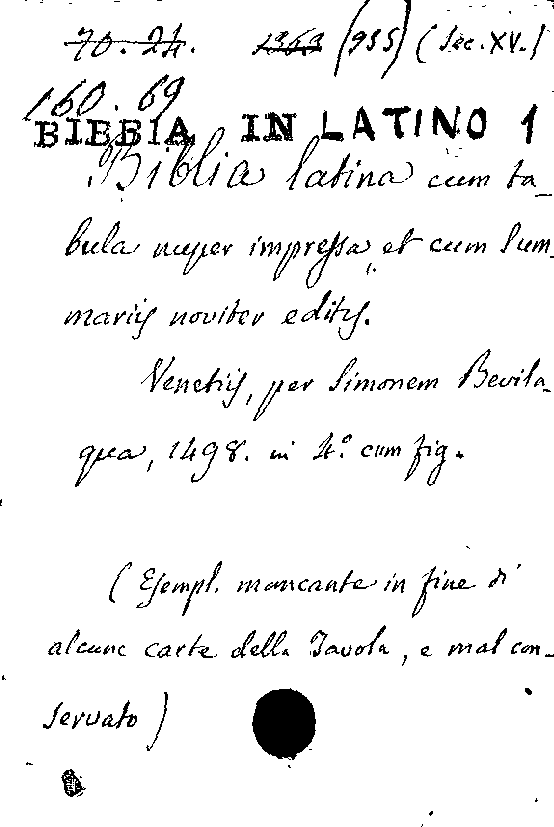 70. 24. 1363 (955) (Sec. XV.)
160. 69
BIBBIA IN LATINO 1
Biblia latina cum ta_
bula nuper impressa, et cum Sum_
mariis noviter editis.
Venetiis, per Simonem Bevila_
qua, 1498. in 4.° cum fig.
(Esempl. mancante in fine di
alcune carte della Tavola, e mal con_
servato)